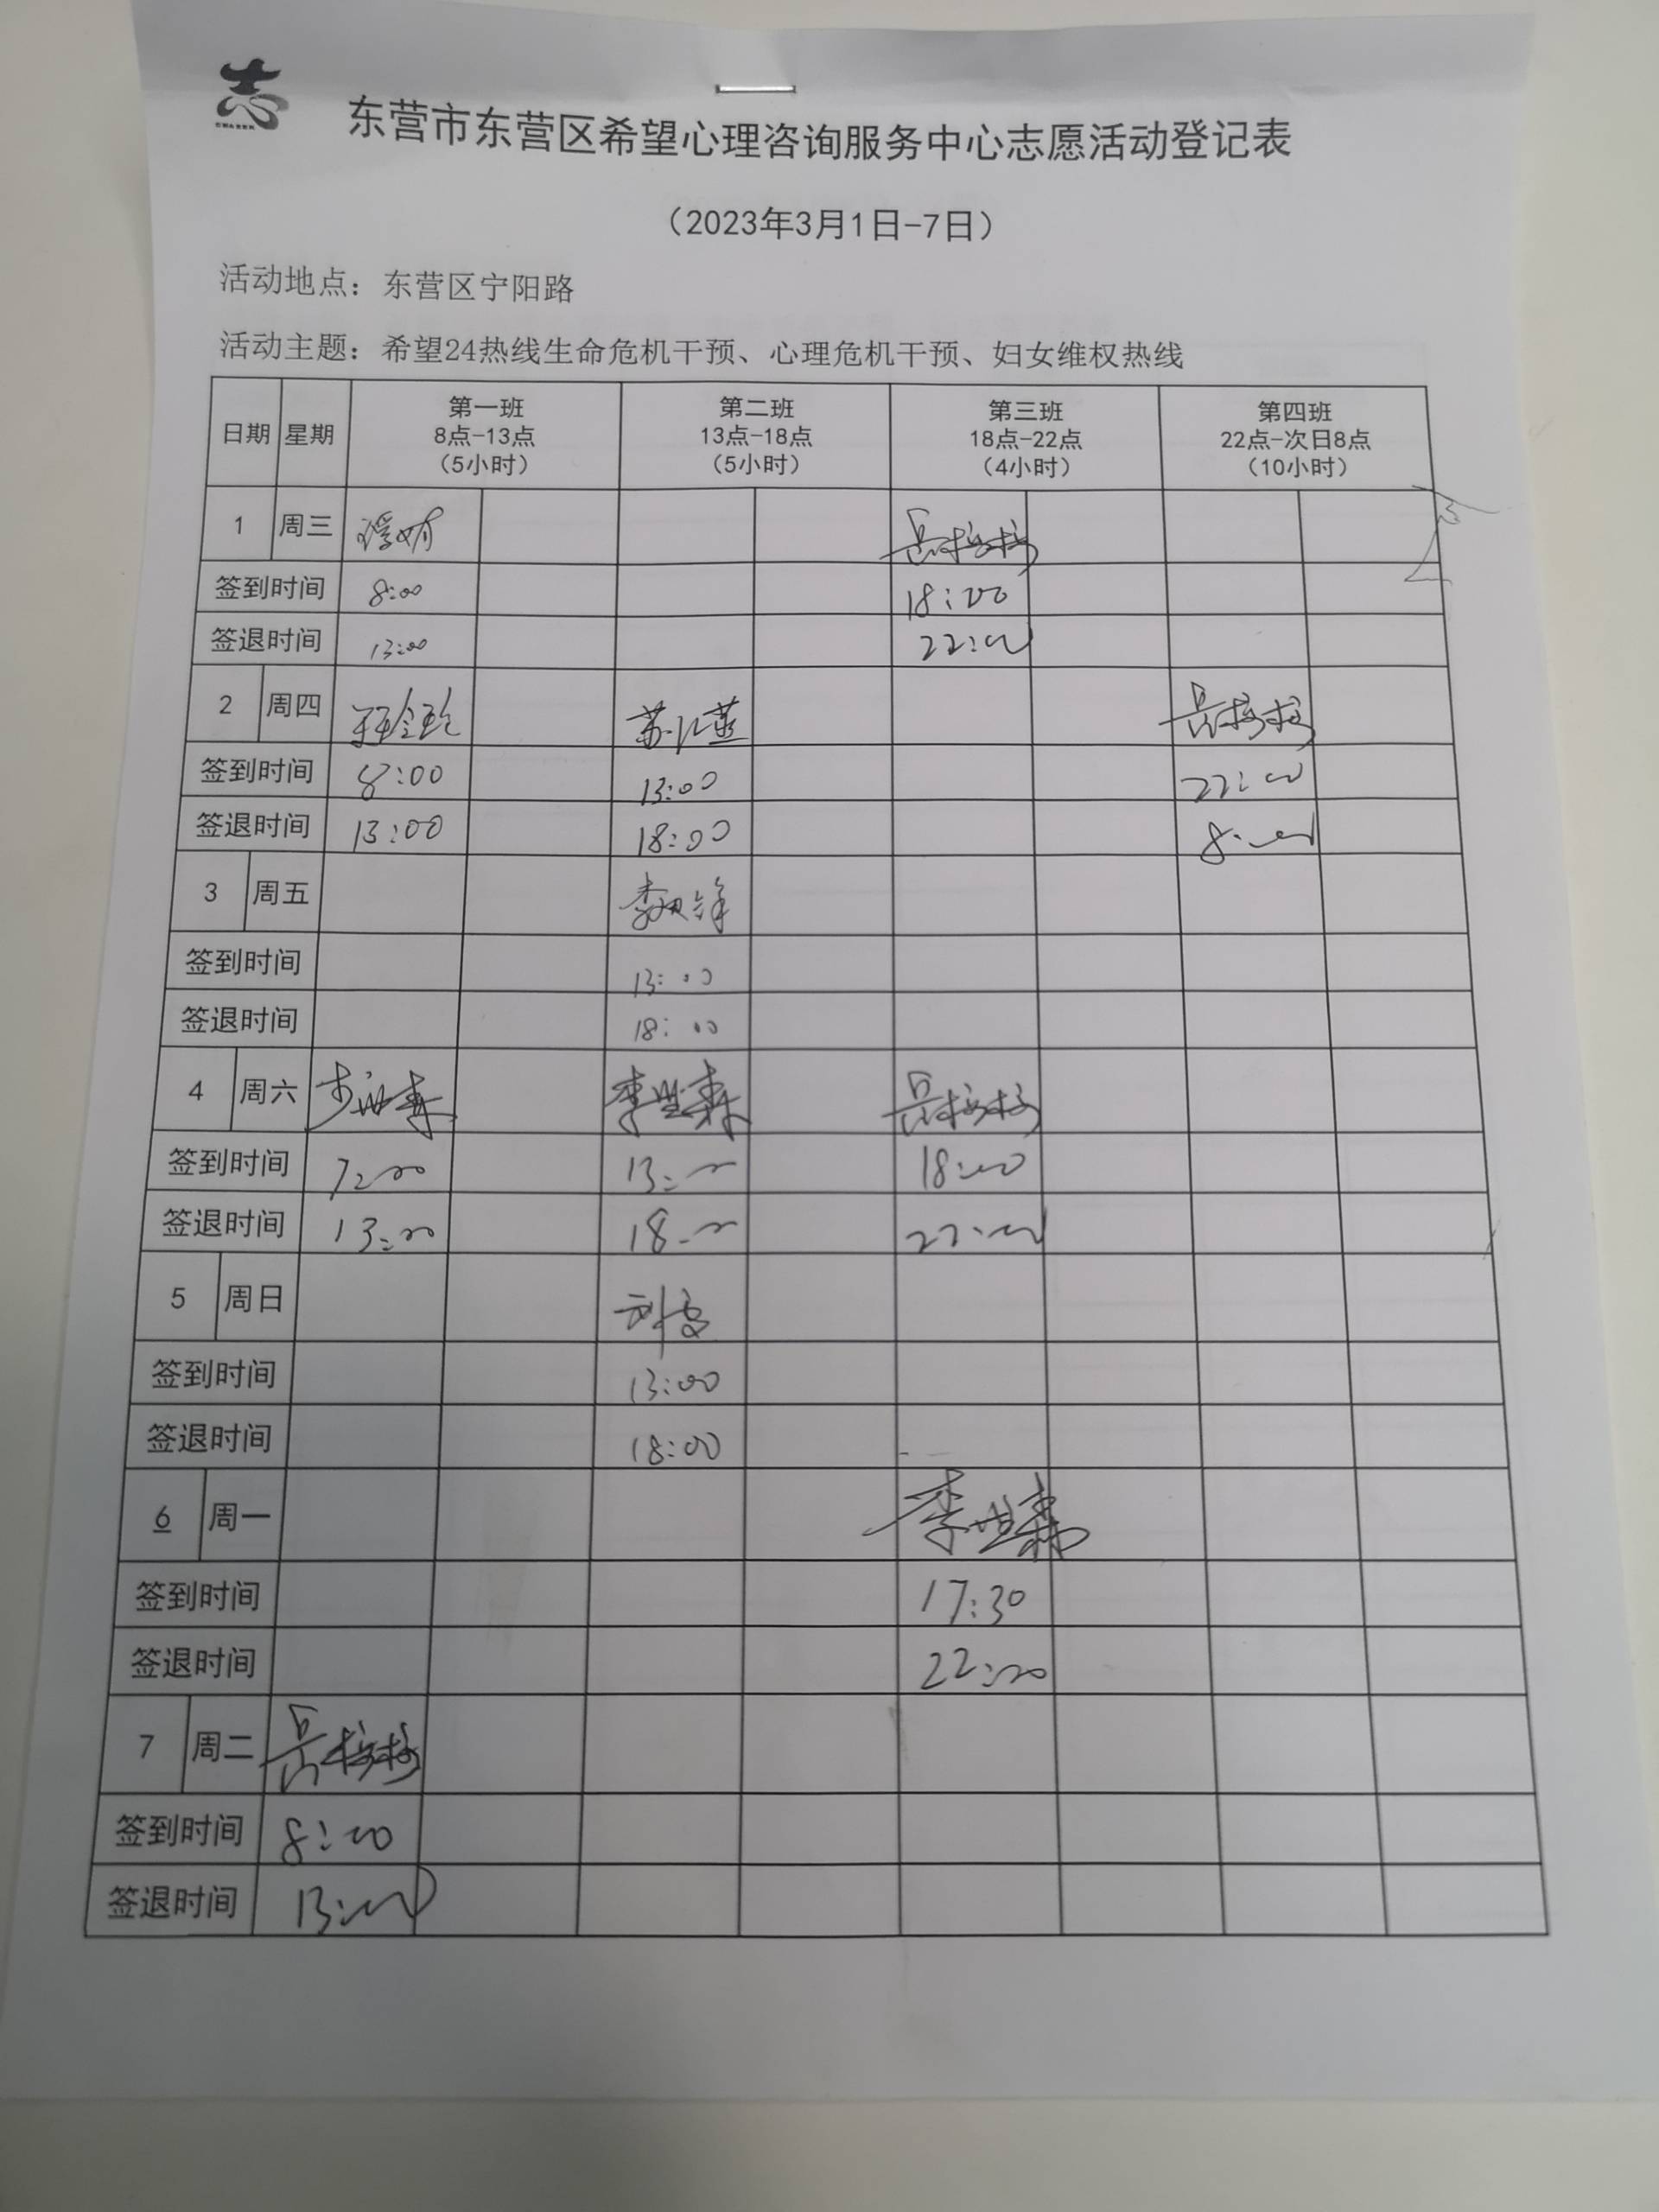 志
东营市东营区希望心理咨询服务中心志愿活动登记表
（2023年3月1日-7日）
活动地点：东营区宁阳路
活动主题：希望24热线生命危机干预、心理危机干预、妇女维权热线
日期 星期 第一班 8点-13点 （5小时） 第二班 13点-18点 （5小时） 第三班 18点-22点 （4小时） 第四班 22点-次日8点 （10小时）
1 周三
签到时间 8:00 18:00
签退时间 13:00 22:00
2 周四
签到时间 8:00 13:00 22:00
签退时间 13:00 18:00 8:00
3 周五
签到时间 13:00
签退时间 18:00
4 周六
签到时间 7:00 13:00 18:00
签退时间 13:00 18:00 22:00
5 周日
签到时间 13:00
签退时间 18:00
6 周一
签到时间 17:30
签退时间 22:00
7 周二
签到时间 8:00
签退时间 13:00